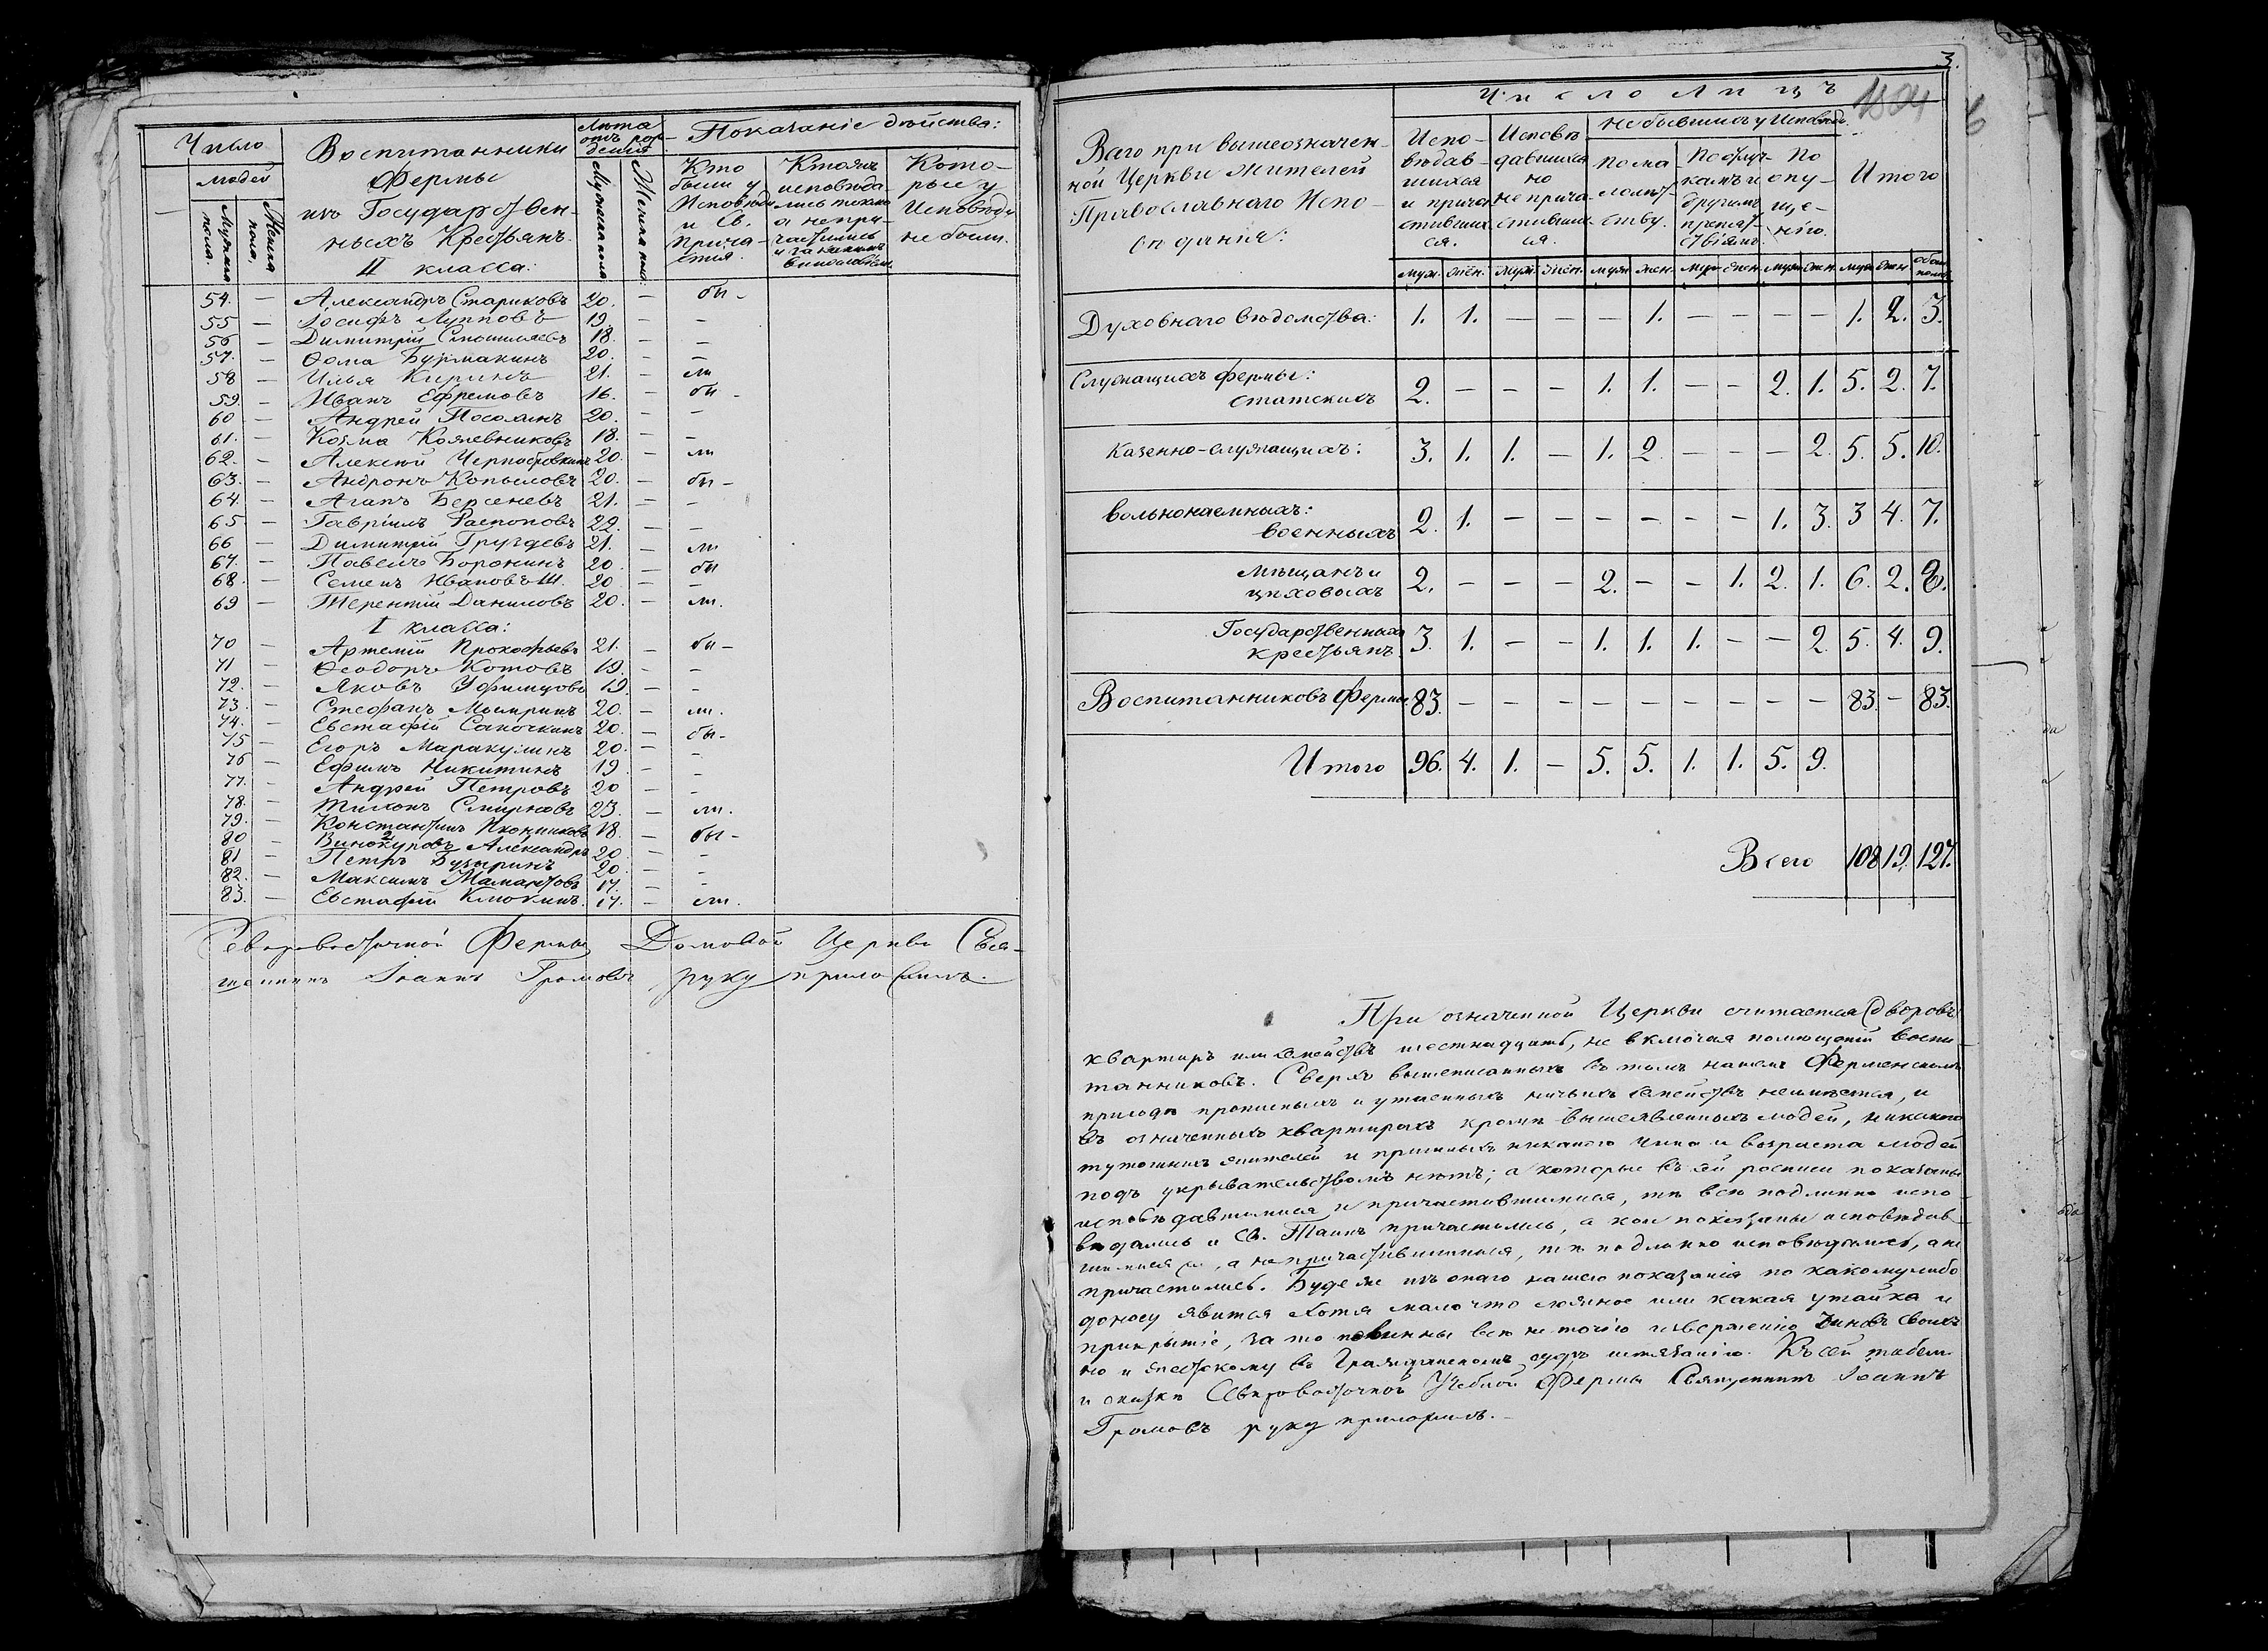 Число
людей
Мужска пола.
Женска пола.
Воспитанники
Фермы
изъ Государствен-
ныхъ Крестьянъ.
II класса:
Лѣта
отъ рож-
денія
Мужска пола
Женска пола
Показаніе дѣйства:
Кто
были у
Исповѣди
и Св.
Прича-
стія.
Кто изъ
исповѣда-
лись токмо
а непри-
частились
и за какимъ
винословіемъ.
Кото-
рые у
Исповѣди
не были.
54. — Александръ Стариковъ 20. — бы-
55 — Іосифъ Лупповъ 19. — —
56 — Димитрій 18. — —
57. — Ѳома Бурмакинъ 20. — —
58 — Илья Киринъ 21. — ли
59. — Иванъ Ефремовъ 16. — бы-
60 — Андрей 20. — —
61. — Козма Кожевниковъ 18. — —
62. — Алексѣй 20. — ли
63. — Андронъ Копысовъ 20. — бы-
64. — Агапъ Берсеневъ 21. — —
65 — Гавріилъ Распоповъ 22. — —
66 — Димитрій Груздевъ 21. — ли
67. — Павелъ Боронинъ 20. — бы
68. — Семенъ Ивановъ III. 20 — —
69 — Терентій Даниловъ 20. — ли.
I класса:
70 — Артемій Прокофьевъ 21. — бы-
71 — Ѳеодоръ Котовъ 19. — —
72. — Яковъ Уфимцовъ 19. — —
73. — Стефанъ 20. — ли.
74. — Евстафій Сапочкинъ 20. — бы-
75 — Егоръ Маракулинъ 20. — —
76 — Ефимъ Никитинъ 19. — —
77. — Андрей Петровъ 20 — —
78. — Тихонъ Смирновъ 23. — ли.
79. — Константинъ Иконниковъ 18. — бы-
80 — Винокуровъ 2 Александръ 20. — —
81 — Петръ Бузыринъ 20. — —
82. — Максимъ 17. — —
83. — Евстафій Клюкинъ. 17. — ли.
Сѣверовосточной Фермы Домовой Церкви Свя-
щенникъ Іоаннъ Громовъ руку приложилъ.
3.
1804
6
Всего при вышеозначен-
ной Церкви Жителей
Православнаго Испо-
вѣданія:
Число лицъ
Испо-
вѣдав-
шихся
и прича-
стивших-
ся.
Исповѣ-
давшихся
но
не прича-
стивших-
ся.
не бывшихъ у Исповѣди.
По ма
лолѣт-
ству.
По отлуч-
камъ и
другимъ
препят-
ствіямъ.
По
опу-
ще-
нію.
Итого
Муж. Жен. Муж. Жен. Муж. Жен. Муж. Жен. Муж. Жен. Муж. Жен. Обоег. пола.
Духовнаго вѣдомства: 1. 1. — — — 1. — — — — 1. 2. 3.
Служащихъ фермы:
статскихъ 2. — — — 1. 1. — — 2. 1. 5. 2. 7.
Казенно-служащихъ: 3. 1. 1. — 1. 2. — — — 2. 5. 5. 10.
вольнонаемныхъ:
военныхъ 2. 1. — — — — — — 1. 3. 3 4. 7.
Мѣщанъ и
цѣховыхъ 2. — — — 2. — — 1. 2. 1. 6. 2. 8.
Государственныхъ
крестьянъ. 3. 1. — — 1. 1. 1. — — 2. 5. 4. 9.
Воспитанниковъ Фермы. 83. — — — — — — — — — 83. — 83.
Итого 96. 4. 1. — 5. 5. 1. 1. 5. 9.
Всего 108 19. 127.
При означенной Церкви считается дворовъ
квартиръ или семействъ шестнадцать, не включая помѣщеній воспи-
танниковъ. Сверхъ вышеписанныхъ въ томъ нашемъ Ферменскомъ
приходѣ прописныхъ и утаенныхъ ничьихъ семействъ неимѣется, и
въ означенныхъ квартирахъ кромѣ вышеявленныхъ людей, никакого
тутошнихъ жителей и пришлыхъ никакого чина и возраста людей
подъ укрывательствомъ нѣтъ; а которые въ сей росписи показаны
исповѣдавшимися и причастившимися, тѣ всѣ подлинно испо-
вѣдались и Св. Таинъ причастились, а кои показаны исповѣдав-
шимися, а не причастившимися, тѣ подлинно исповѣдались, а не
причастились. Буде же изъ онаго нашего показанія по какомулибо
доносу явится хотя мало что ложное или какая утайка и
прикрытіе, за то повинны всѣ не точію изверженію чиновъ своихъ
но и жестокому въ Гражданскомъ судѣ истязанію. Къ сей табели
и сказкѣ Сѣверовосточной Учебной Фермы Священникъ Іоаннъ
Громовъ руку приложилъ.